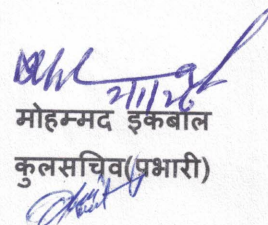 2/1/26
मोहम्मद इकबाल
कुलसचिव(प्रभारी)